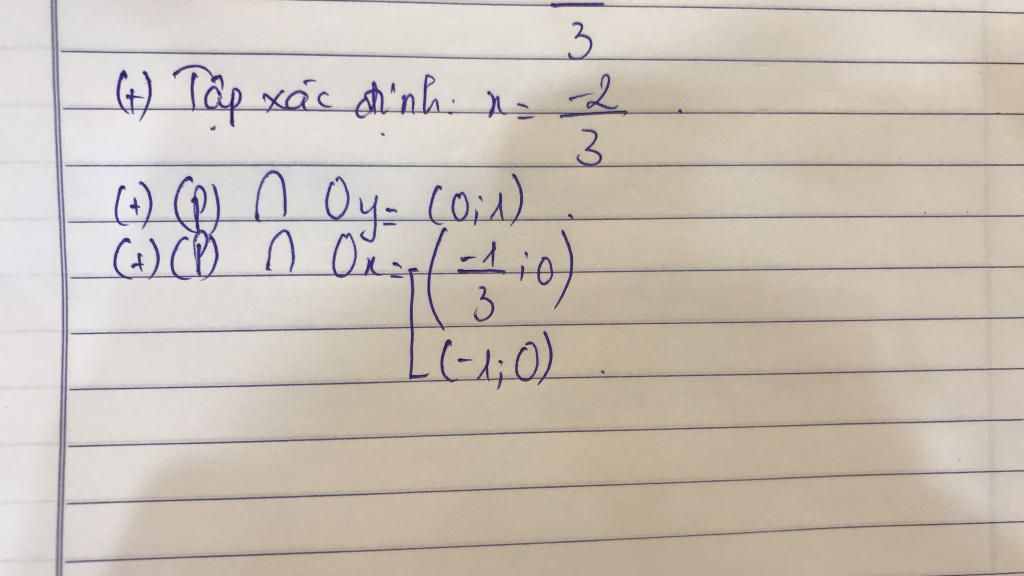 3
(+) Tập xác định: x = -2/3.
(+) (P) ∩ Oy = (0;1).
(+) (P) ∩ Ox = [ (-1/3; 0)
(-1; 0).